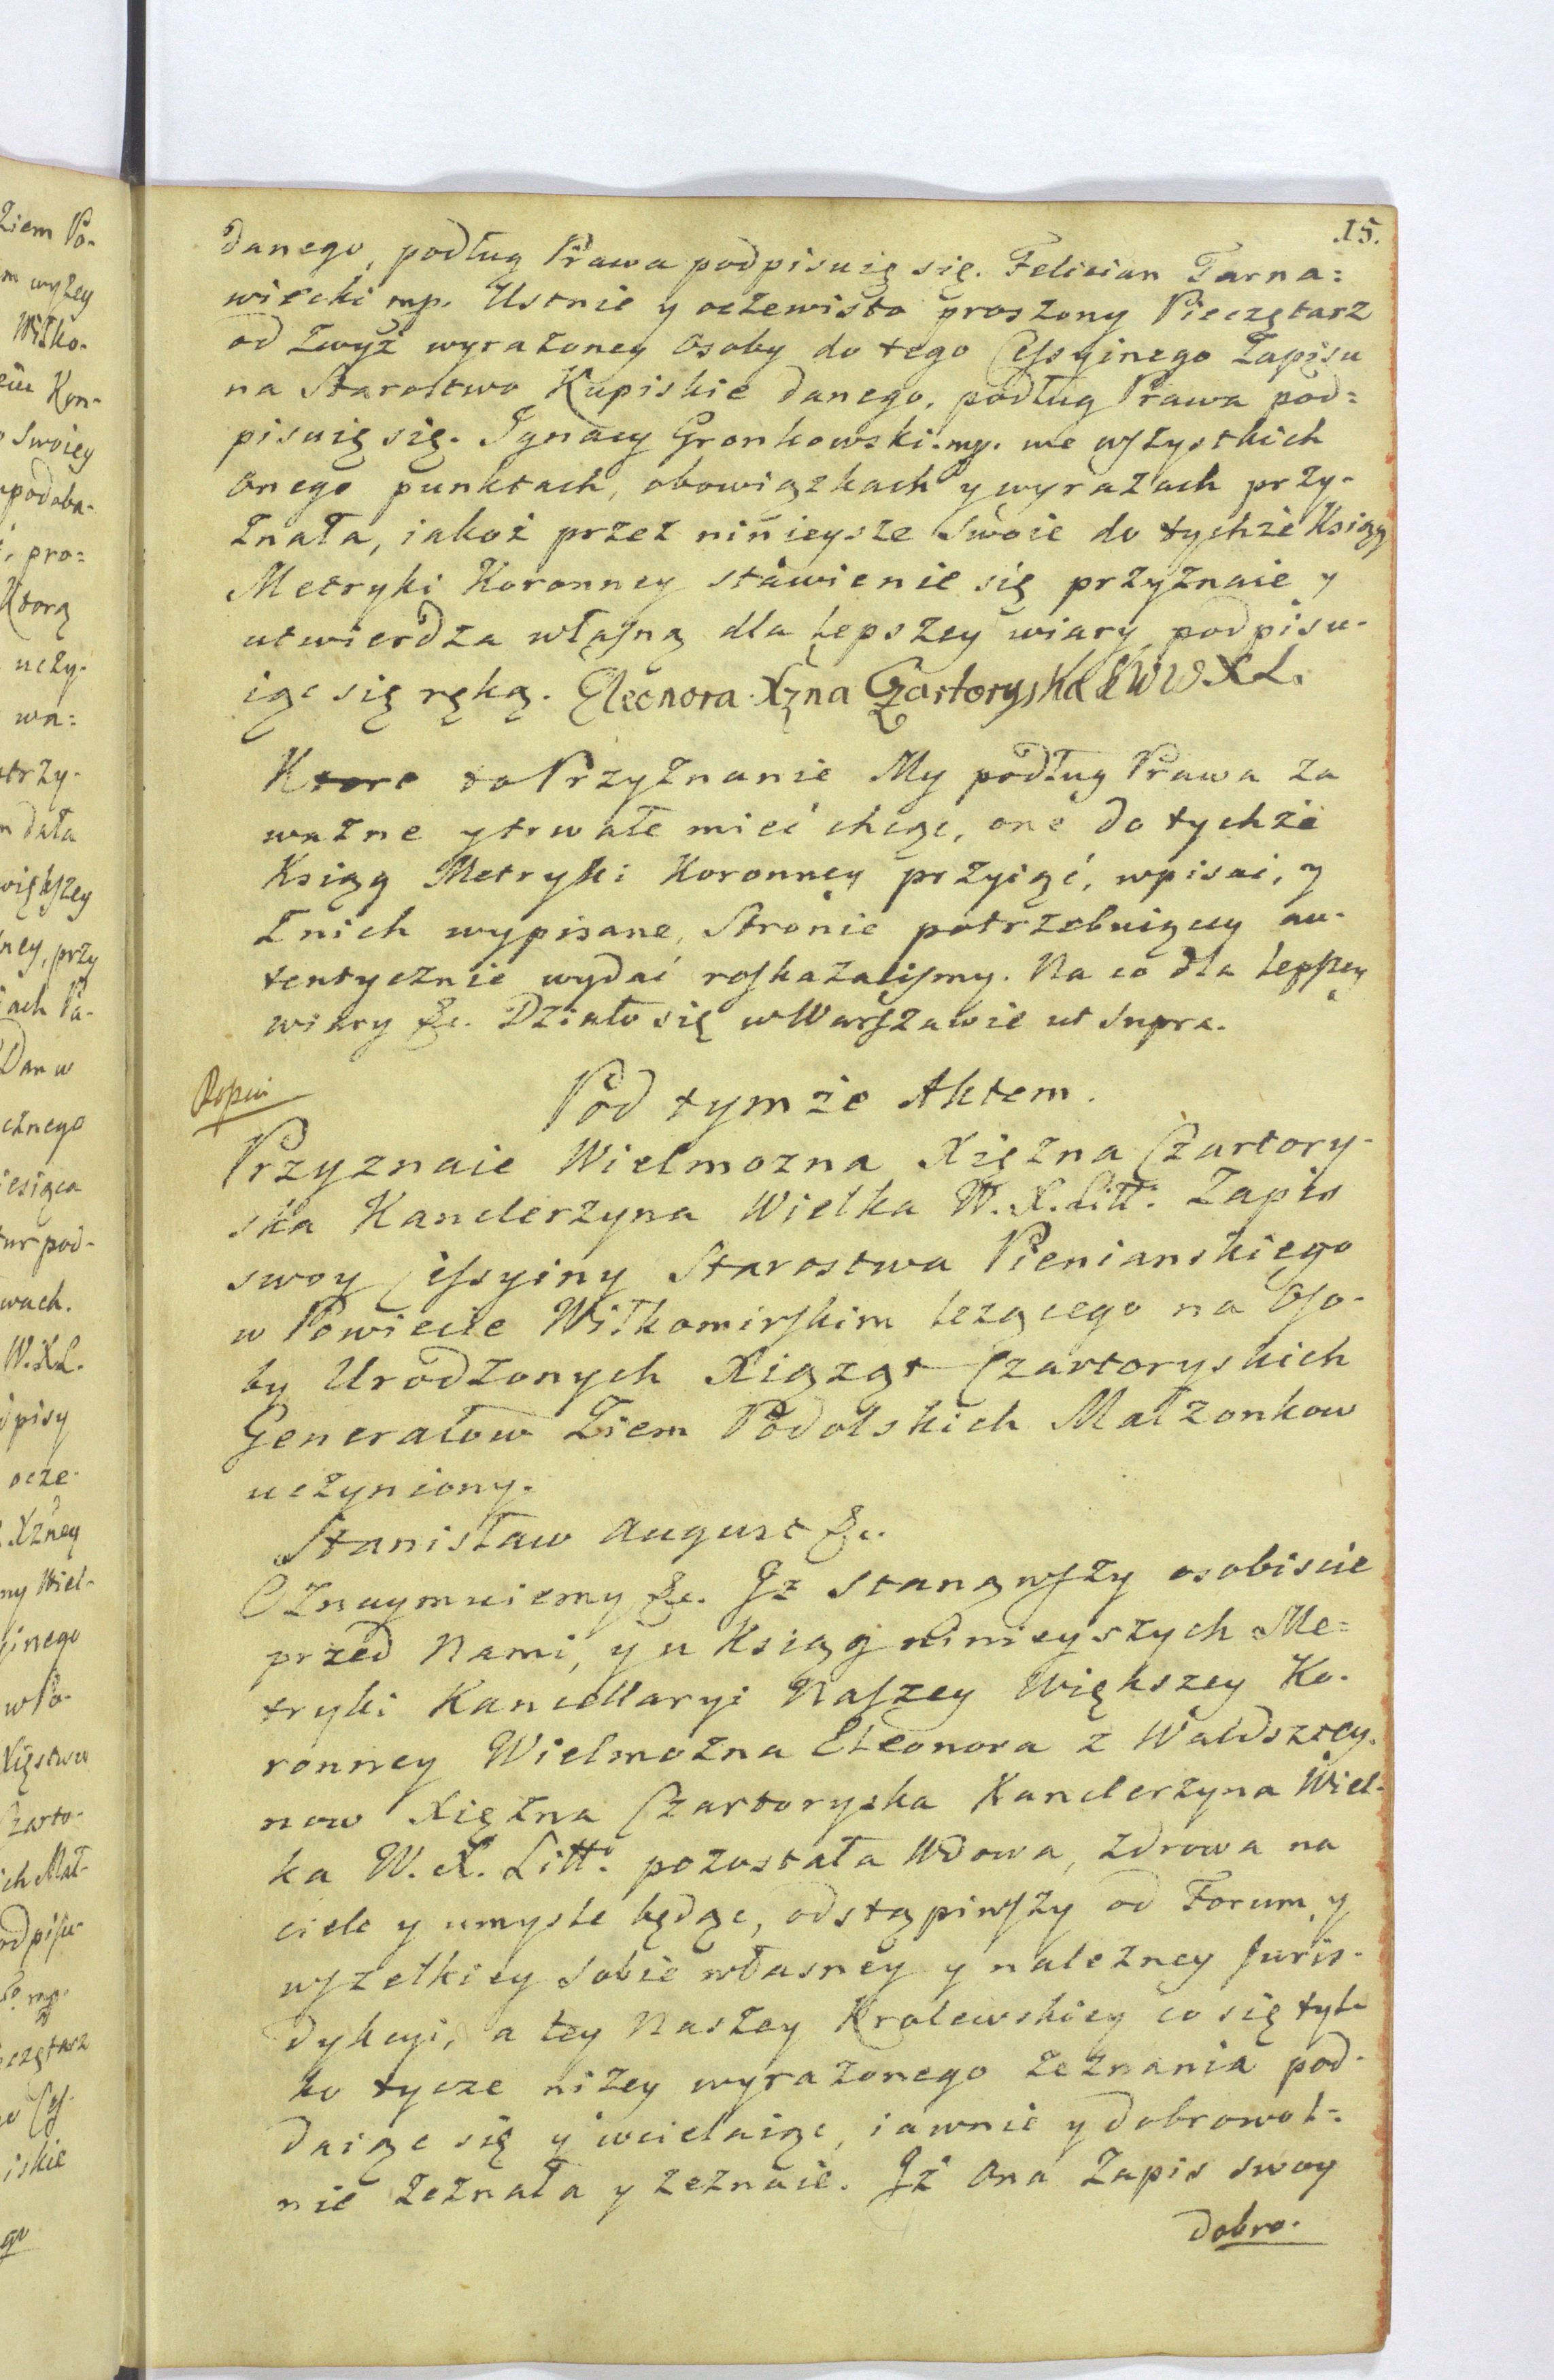 .15.
danego, podług Prawa podpisuię się. Felician Tarna=
wiecki mp. Ustnie y oczewisto proszony Pieczętarz
od zwyż wyrażoney osoby do tego Cessyinego Zapisu
na Starostwo Kupiskie danego, podług Prawa pod=
pisuię się. Ignacy Gronkowski. mp. we wszystkich
onego punktach, obowiązkach y wyrazach przy-
znała, iakoż przez ninieysze swoie do tychże Ksiąg
Metryki Koronney stawienie się przyznaie y
utwierdza własną dla lepszey wiary podpisu-
iąc się ręką. Eleonora Xzna Czartoryska K W W X L.
Ktore to Przyznanie My podług Prawa za
ważne y trwałe mieć chcąc, one do tychże
Ksiąg Metryki Koronney przyiąć, wpisać, y
z nich wypisane, Stronie potrzebuiącey au-
tentycznie wydać roskazalismy. Na co dla lepszey
wiary &c. Działo się w Warszawie ut supra.
Pod tymże Aktem.
Przyznaie Wielmozna Xiężna Czartory-
ska Kanclerzyna Wielka W. X. Litt: Zapis
swoy Cessyiny Starostwa Pienianskiego
w Powiecie Wiłkomirskim leżącego na Oso-
by Urodzonych Xiążąt Czartoryskich
Generałow Ziem Podolskich Małzonkow
uczyniony.
Stanisław August &c.
Oznaymuiemy &c. Iż stanąwszy osobiscie
przed Nami, y u Ksiąg ninieyszych Me=
tryki Kancellaryi Naszey Większey Ko-
ronney Wielmożna Eleonora z Waldsztey-
now Xiężna Czartoryska Kanclerzyna Wiel-
ka W. X. Litt: pozostała Wdowa, zdrowa na
ciele y umysle będąc, odstąpiwszy od Forum y
wszelkiey sobie własney y należney Juris-
dykcyi, a tey Naszey Krolewskiey co się tyl-
ko tycze niżey wyrażonego zeznania pod-
daiąc się y wcielaiąc, iawnie y dobrowol-
nie zeznała y zeznaie. Iż Ona Zapis swoy
dobro-